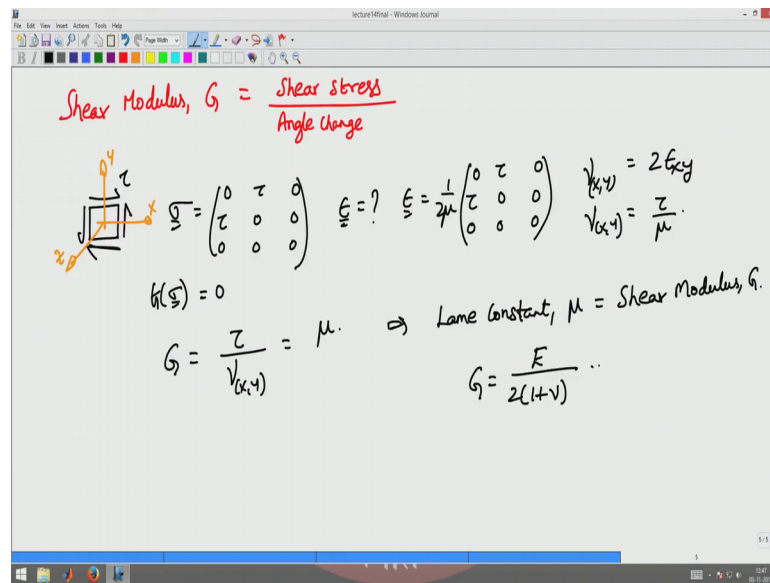 lecture14final - Windows Journal
File Edit View Insert Actions Tools Help
Page Width
B I
Shear Modulus, G = Shear stress / Angle Change
y
τ
x
z
σ = (0 τ 0
τ 0 0
0 0 0)
ε = ?
ε = 1/2μ (0 τ 0
τ 0 0
0 0 0)
γ(x,y) = 2εxy
γ(x,y) = τ/μ.
tr(σ) = 0
G = τ/γ(x,y) = μ. ⇒ Lame Constant, μ = Shear Modulus, G.
G = E/2(1+ν) ..
5/5
5
12:47